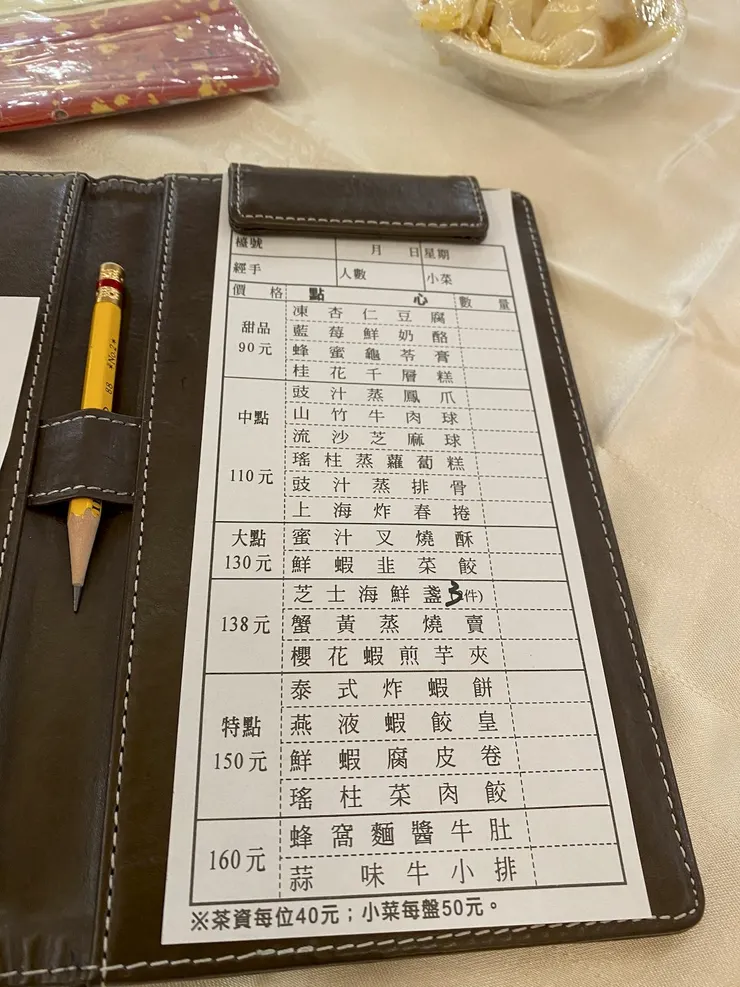 檯號 月 日 星期
經手 人數 小菜
價格 點心 數量
甜品 90元
凍杏仁豆腐
藍莓鮮奶酪
蜂蜜龜苓膏
桂花千層糕
中點 110元
豉汁蒸鳳爪
山竹牛肉球
流沙芝麻球
瑤柱蒸蘿蔔糕
豉汁蒸排骨
上海炸春捲
大點 130元
蜜汁叉燒酥
鮮蝦韭菜餃
138元
芝士海鮮盞3件)
蟹黃蒸燒賣
櫻花蝦煎芋夾
特點 150元
泰式炸蝦餅
燕液蝦餃皇
鮮蝦腐皮卷
瑤柱菜肉餃
160元
蜂窩麵醬牛肚
蒜味牛小排
※茶資每位40元；小菜每盤50元。
No.2